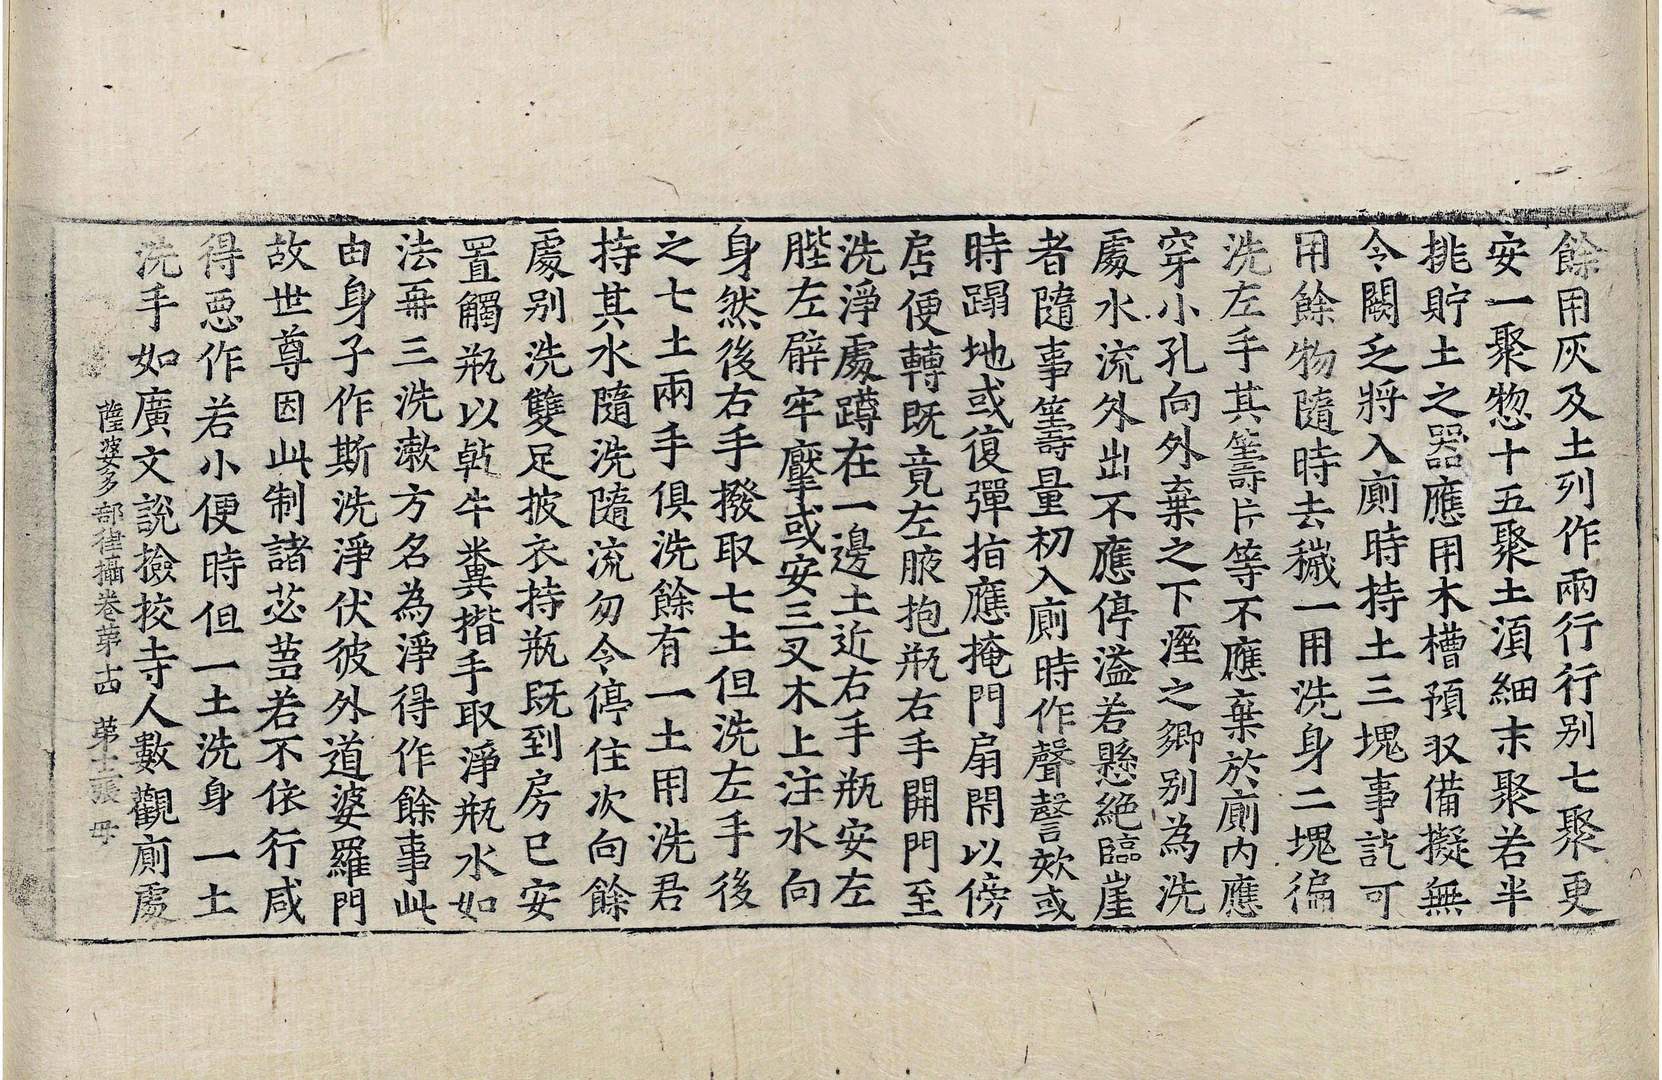 餘用灰及土列作兩行行別七聚更
安一聚惣十五聚土湏細末聚若半
挑貯土之器應用木槽預収備擬無
令闕乏將入廁時持土三塊事訖可
用餘物隨時去穢一用洗身二塊徧
洗左手其籌片等不應棄於廁内應
穿小孔向外棄之下溼之鄉別為洗
處水流外出不應停溢若懸絕臨崖
者隨事籌量初入廁時作聲謦欬或
時蹋地或復彈指應掩門扇閇以傍
居便轉既竟左腋抱瓶右手開門至
洗淨處蹲在一邊土近右手瓶安左
䏶左臂牢壓或安三叉木上注水向
身然後右手撥取七土但洗左手後
之七土兩手俱洗餘有一土用洗君
持其水隨洗隨流勿令停住次向餘
處別洗雙足披衣持瓶既到房已安
置觸瓶以乾牛糞揩手取淨瓶水如
法再三洗漱方名為淨得作餘事此
由身子作斯洗淨伏彼外道婆羅門
故世尊因此制諸苾芻若不依行咸
得惡作若小便時但一土洗身一土
洗手如廣文說撿挍寺人數觀廁處
薩婆多部律攝卷苐十四 苐十二張 母